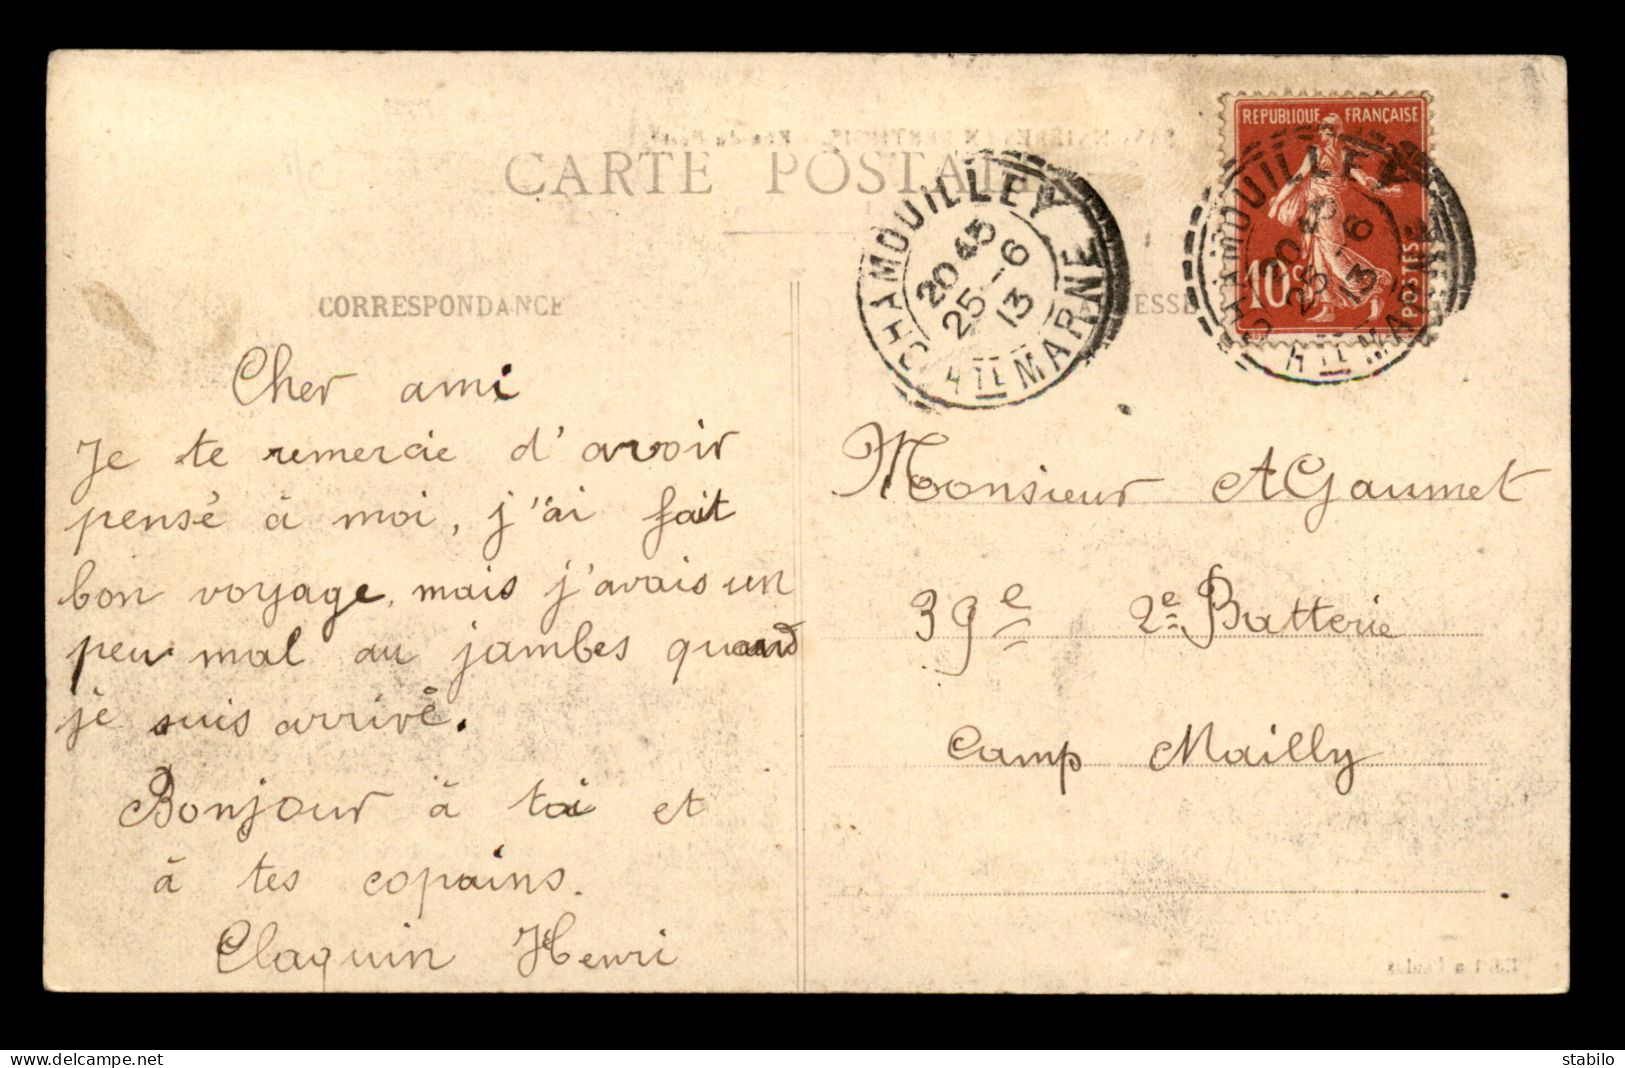 CARTE POSTALE
CORRESPONDANCE
Cher ami
Je te remercie d'avoir
pensé à moi, j'ai fait
bon voyage, mais j'avais un
peu mal au jambes quand
je suis arrivé.
Bonjour à toi et
à tes copains.
Claquin Henri
REPUBLIQUE FRANÇAISE
10c POSTES
CHAMOUILLEY
20 45
25 - 6
13
HTE MARNE
CHAMOUILLEY
20 45
25 - 6
13
HTE MARNE
Monsieur A Gaumet
39e 2e Batterie
Camp Mailly
stabilo